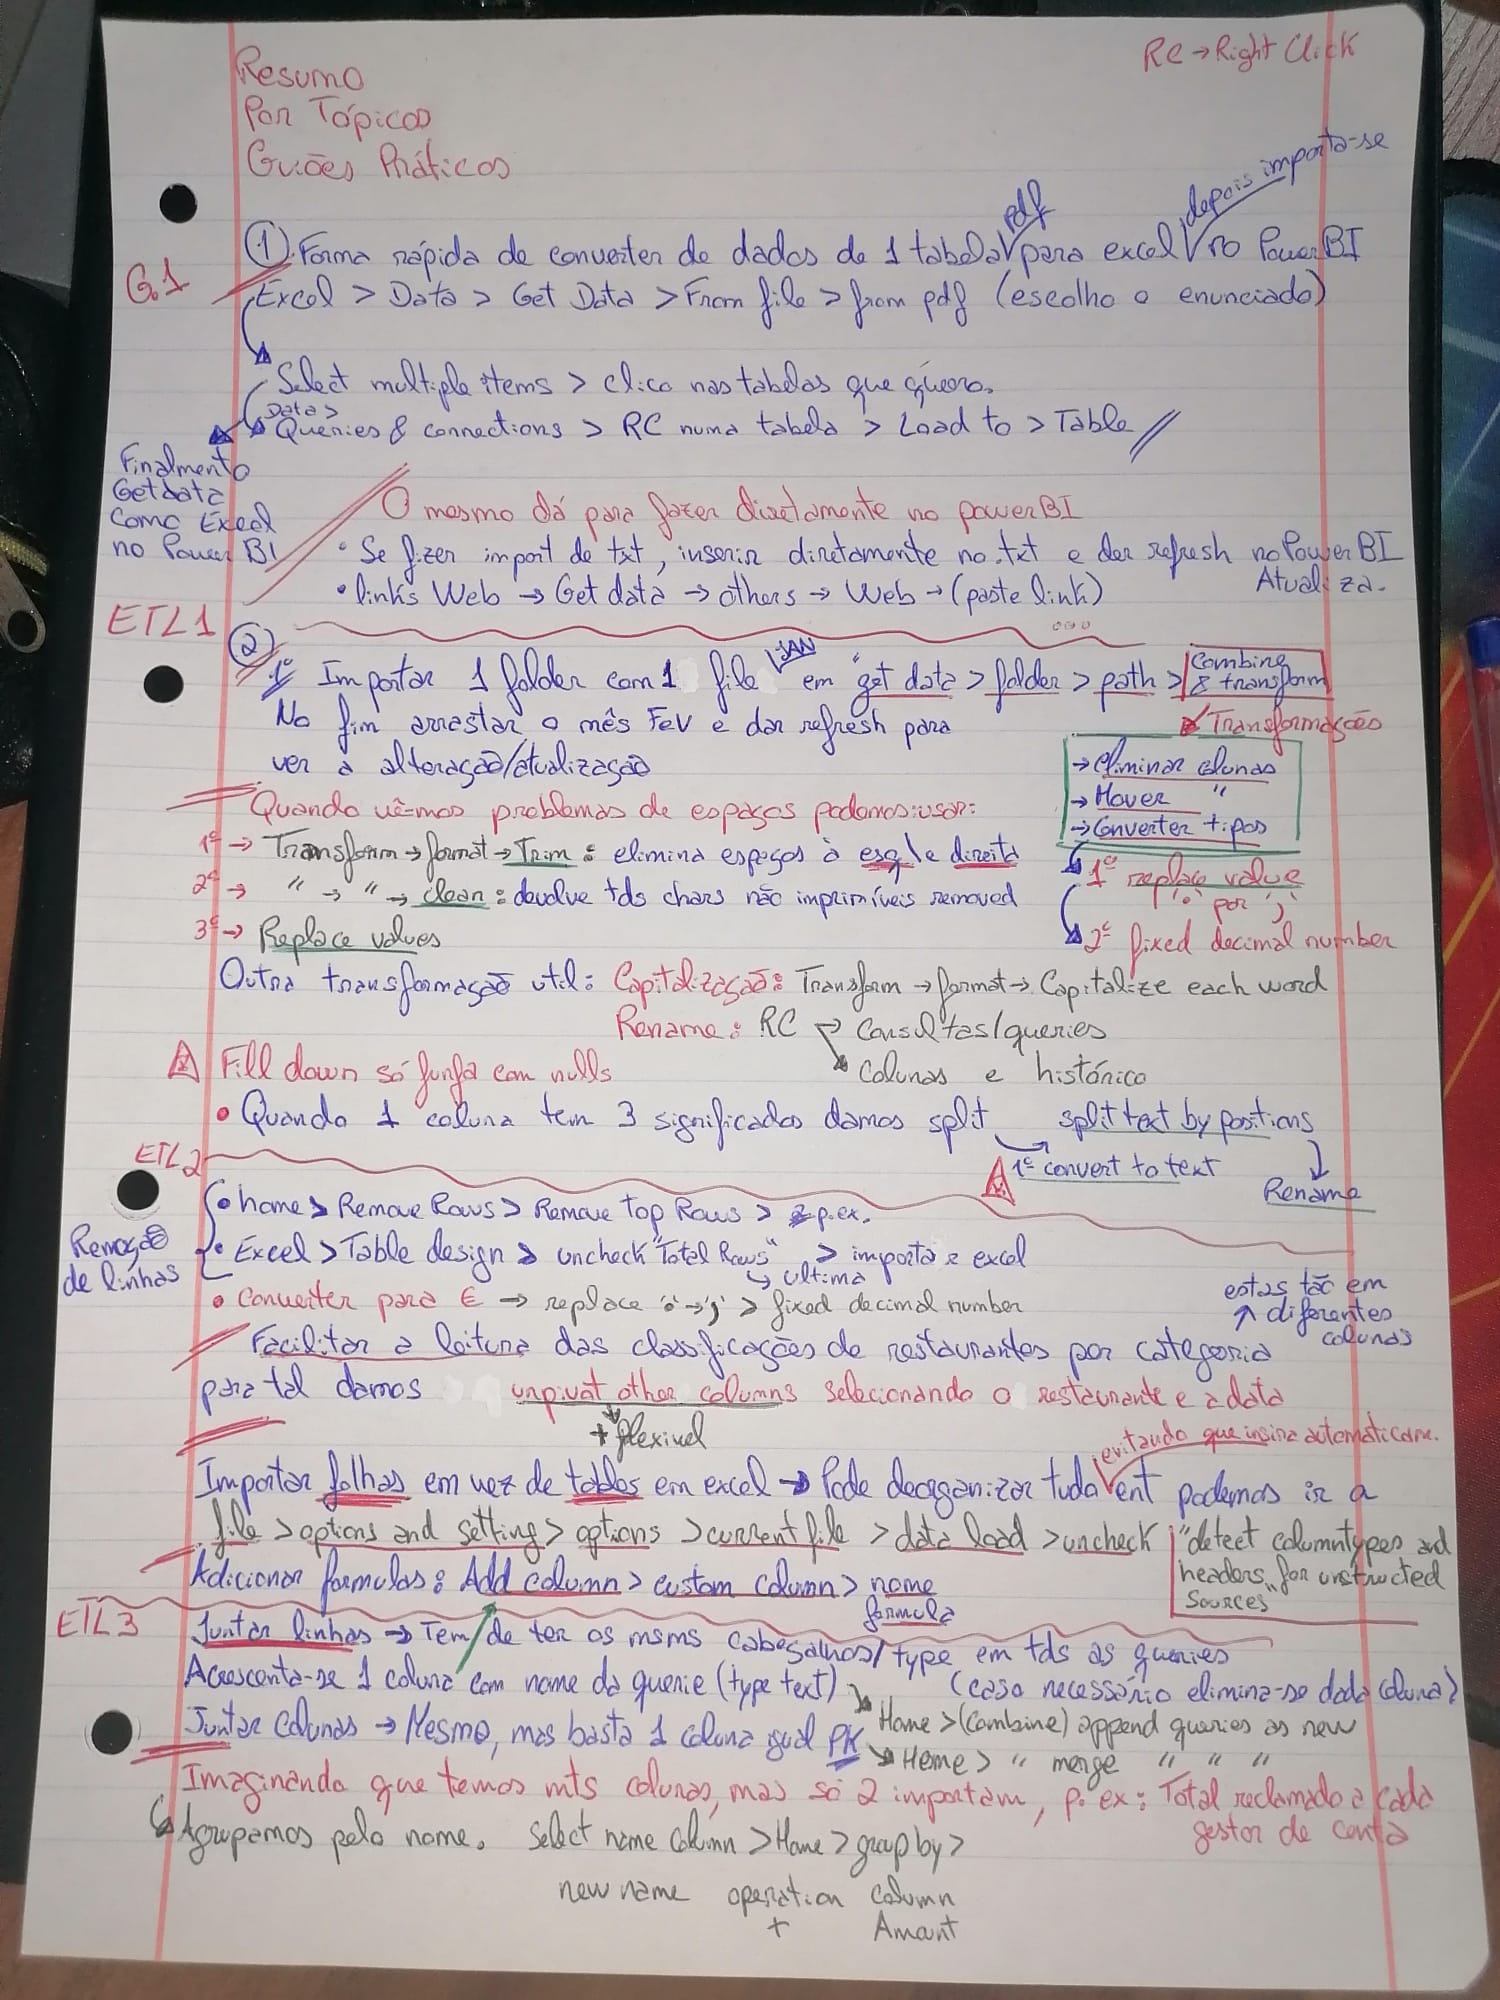 RC → Right Click
Resumo
Por Tópicos
Guiões Práticos
G.1
① Forma rápida de converter de dados de 1 tabela pdf para excel depois importa-se no Power BI
Excel > Data > Get Data > From file > from pdf (escolho o enunciado)
Select multiple items > clico nas tabelas que quero.
Data >
Queries & connections > RC numa tabela > Load to > Table //
Finalmente
Get data
como Excel
no Power BI
O mesmo dá para fazer diretamente no power BI
• Se fizer import de txt, inserir diretamente no .txt e der refresh no Power BI
Atualiza.
• links Web → Get data → others → Web → (paste link)
ETL 1
②
1º Importar 1 folder com 1 file JAN em "get data > folder > path > Combine & transform
No fim arrastar o mês FEV e dar refresh para
ver a alteração/atualização
Transformações
→ eliminar colunas
→ Mover "
→ Converter tipos
1º replace value
'.' por ','
2º fixed decimal number
Quando vê-mos problemas de espaços podemos usar:
1º → Transform → format → Trim : elimina espaços à esq e direita
2º → " → " → clean : devolve tds chars não imprimíveis removed
3º → Replace values
Outra transformação util: Capitalização: Transform → format → Capitalize each word
Rename: RC → Consultas/queries
→ Colunas e histórico
Fill down só funfa com nulls
• Quando 1 coluna tem 3 significados damos split split text by positions
1º convert to text
Rename
ETL 2
Remoção
de linhas
• home > Remove Rows > Remove top Rows > 2 p.ex.
• Excel > Table design > uncheck "Total Rows" > importa e excel
↳ ultima
• Converter para € → replace '.' → ',' > fixed decimal number
estas tão em
↑ diferentes
colunas
Facilitar a leitura das classificações de restaurantes por categoria
para tal damos unpivot other columns selecionando o restaurante e a data
+ flexivel
evitando que insira automaticam.
Importar folhas em vez de tables em excel → Pode desorganizar tudo ent podemos ir a
file > options and setting > options > current file > data load > uncheck "detect column types and
headers" for unstructed
Sources
Adicionar formulas: Add column > custom column > nome
formula
ETL 3
Juntar linhas → Tem de ter os msms cabeçalhos/type em tds as queries
Acrescenta-se 1 coluna com nome da querie (type text) (caso necessário elimina-se dada coluna)
Home > (Combine) append queries as new
Juntar Colunas → Mesmo, mas basta 1 coluna igual PK
Home > " merge " " "
Imaginando que temos mts colunas, mas só 2 importam, p. ex: Total reclamado a cada
gestor de conta
↳ Agrupamos pelo nome. Select name column > Home > group by >
new name operation column
+ Amount